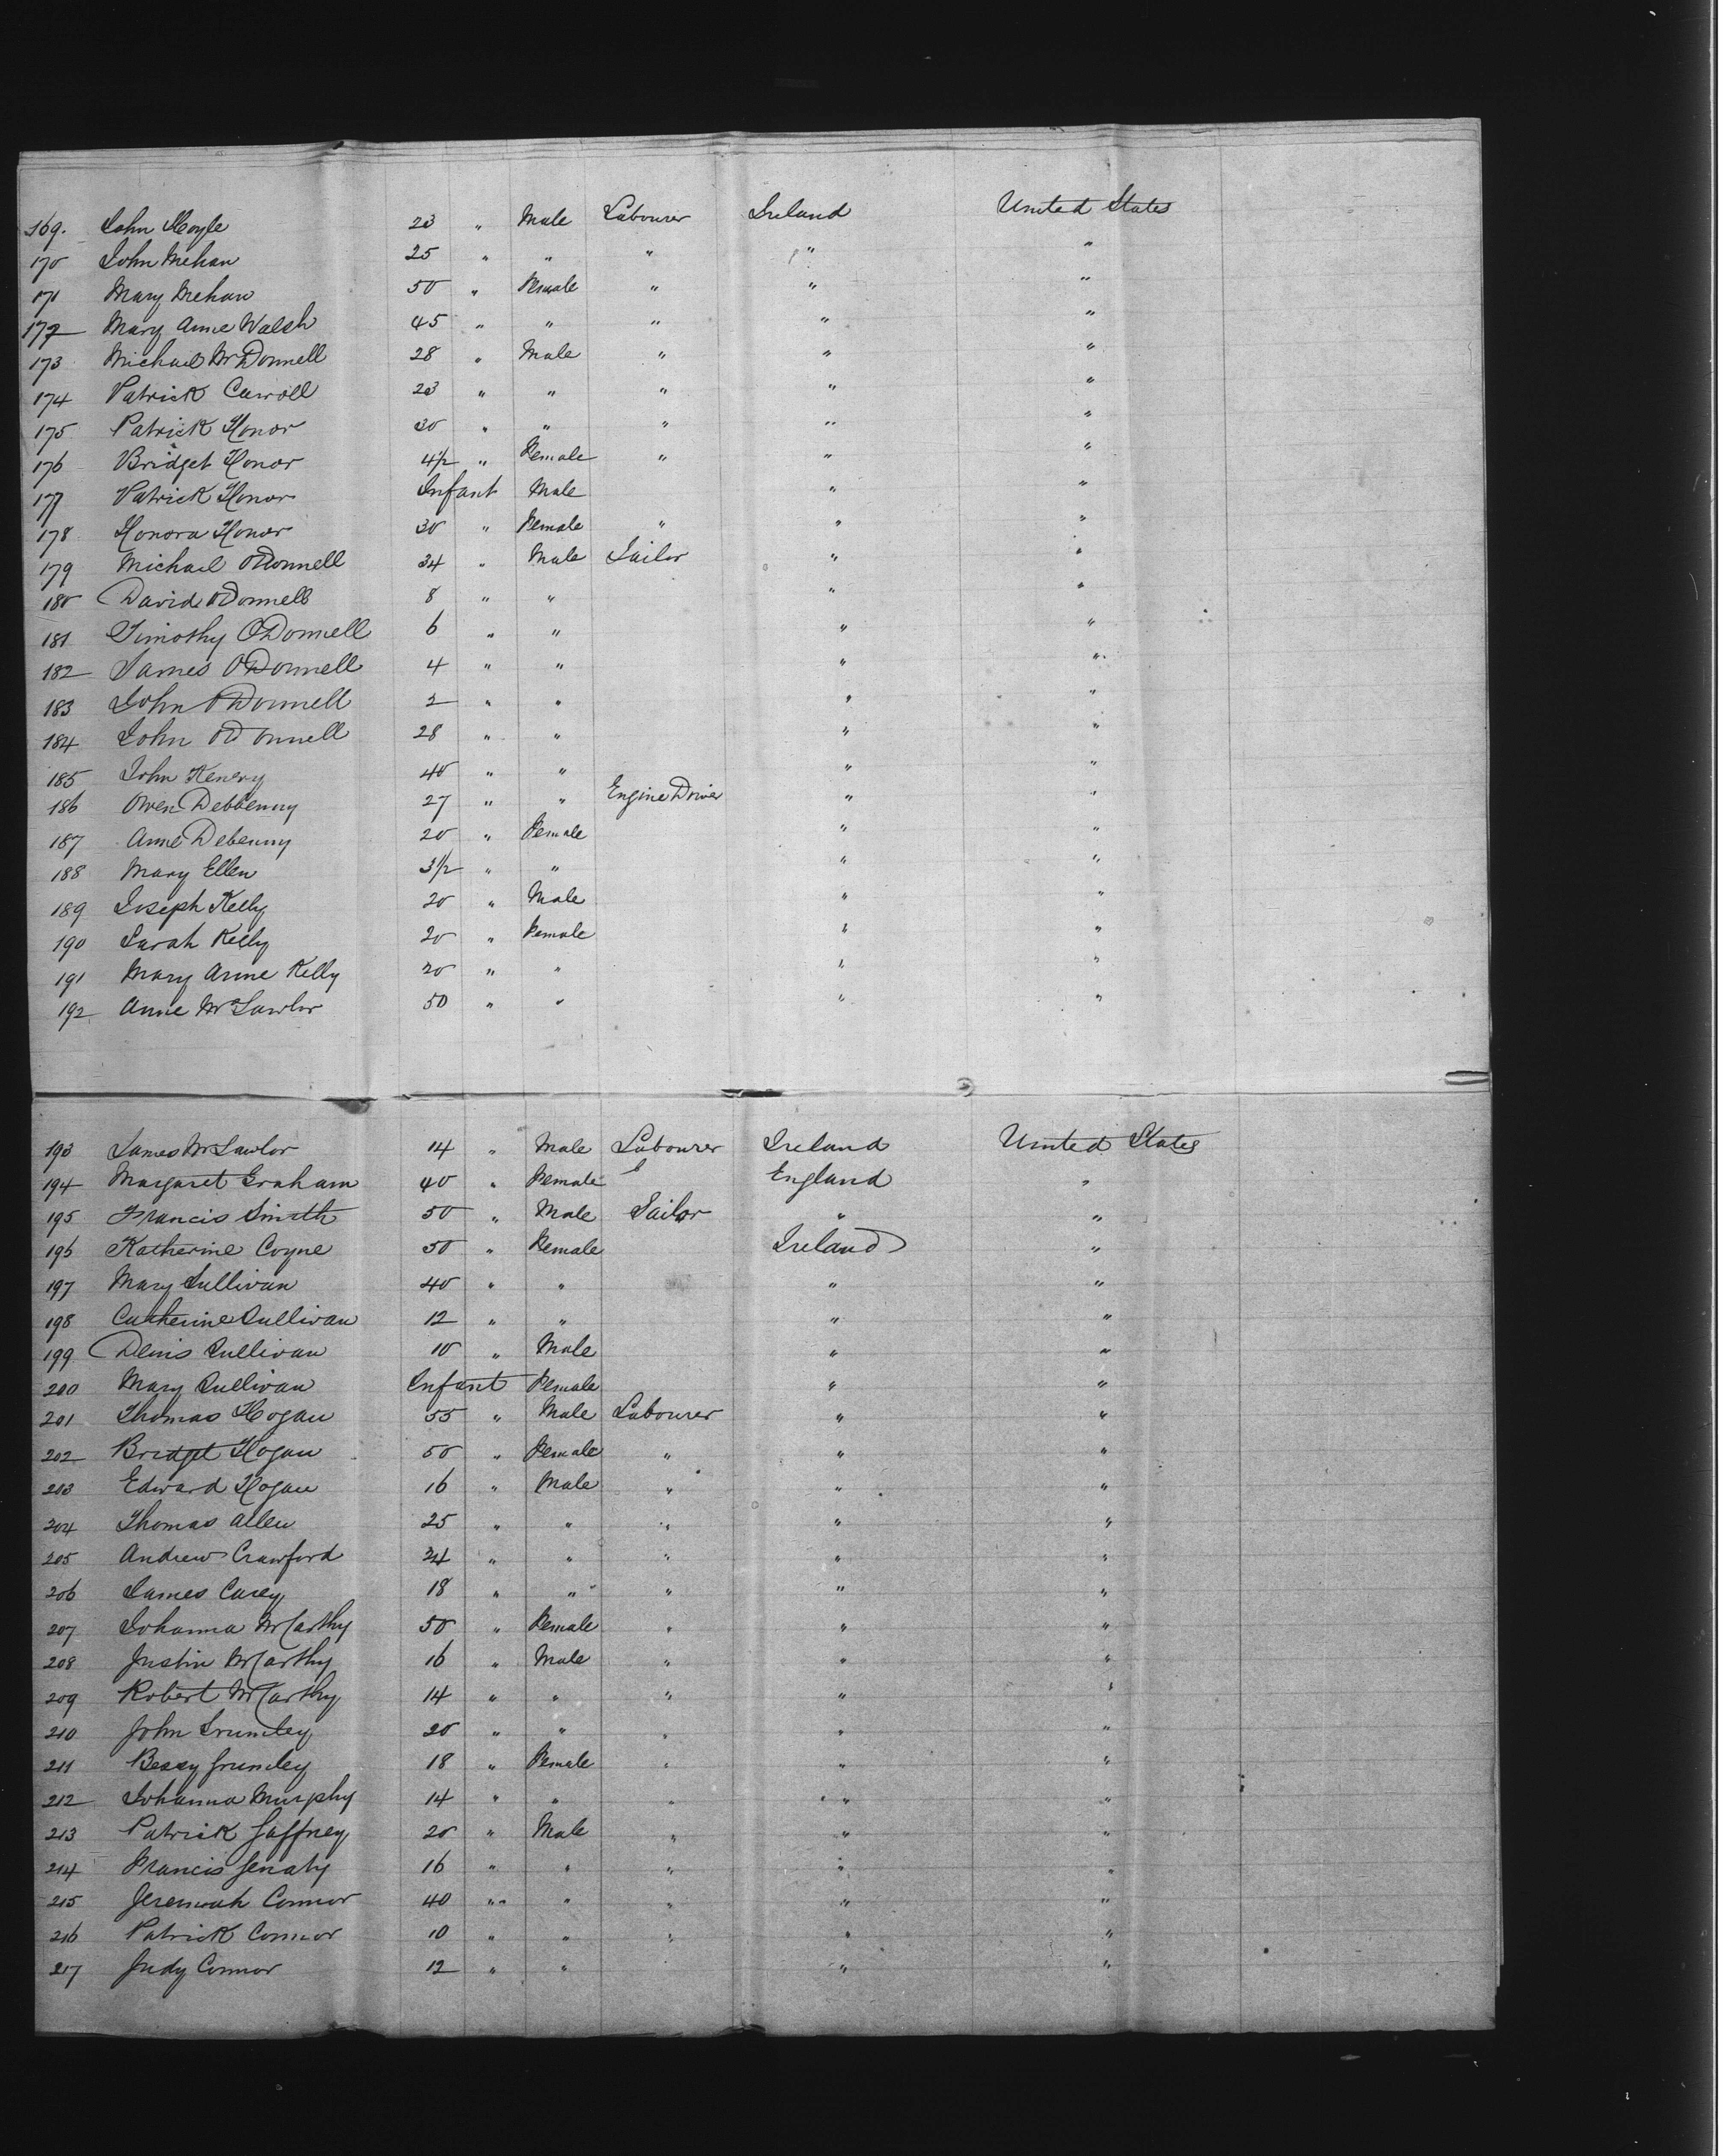 169. John Hoyle 23 " Male Labourer Ireland United States
170 John Mehan 25 " " " " "
171 Mary Mehan 50 " Female " " "
172 Mary Anne Walsh 45 " " " " "
173 Michael McDonnell 28 " Male " " "
174 Patrick Carroll 23 " " " " "
175 Patrick Honor 30 " " " " "
176 Bridget Honor 4½ " Female " " "
177 Patrick Honor Infant Male " "
178 Honora Honor 30 " Female " " "
179 Michael O'Donnell 34 " Male Sailor " "
180 David O'Donnell 8 " " " "
181 Timothy O'Donnell 6 " " " "
182 James O'Donnell 4 " " " "
183 John O'Donnell 2 " " " "
184 John O'Donnell 28 " " " "
185 John Kenery 40 " " " "
186 Owen Debbenny 27 " " Engine Driver " "
187 Anne Debenny 20 " Female " "
188 Mary Ellen 3½ " " " "
189 Joseph Kelly 20 " Male " "
190 Sarah Kelly 20 " Female " "
191 Mary Anne Kelly 20 " " " "
192 Anne McLawlor 50 " " " "
193 James McLawlor 14 " Male Labourer Ireland United States
194 Margaret Graham 40 " Female England "
195 Francis Smith 50 " Male Sailor " "
196 Katherine Coyne 50 " Female Ireland "
197 Mary Sullivan 40 " " " "
198 Catherine Sullivan 12 " " " "
199 Denis Sullivan 10 " Male " "
200 Mary Sullivan Infant Female " "
201 Thomas Hogan 55 " Male Labourer " "
202 Bridget Hogan 50 " Female " " "
203 Edward Hogan 16 " Male " " "
204 Thomas Allen 25 " " " " "
205 Andrew Crawford 34 " " " " "
206 James Carey 18 " " " " "
207 Johanna McCarthy 50 " Female " " "
208 Justin McCarthy 16 " Male " " "
209 Robert McCarthy 14 " " " " "
210 John 20 " " " " "
211 Bessy 18 " Female " " "
212 Johanna Murphy 14 " " " " "
213 Patrick Gaffney 20 " Male " " "
214 Francis 16 " " " " "
215 Jeremiah Connor 40 " " " " "
216 Patrick Connor 10 " " " " "
217 Judy Connor 12 " " " "